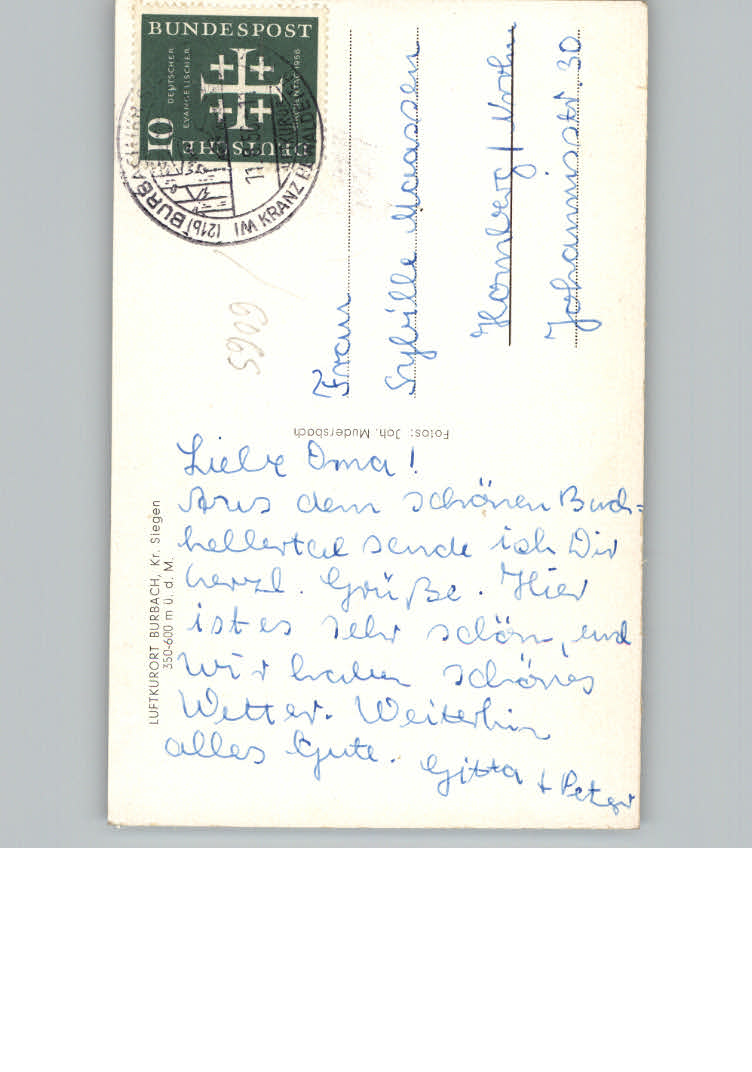 BUNDESPOST
DEUTSCHER
EVANGELISCHER
KIRCHENTAG 1956
10
DEUTSCHE
(21b) BURBACH
IM KRANZ
Frau
Sybille Maassen
Homberg / Ndrhn
Johannisstr. 30
6065
Fotos: Joh. Mudersbach
LUFTKURORT BURBACH, Kr. Siegen
350-600 m ü. d. M.
Liebe Oma!
Aus dem schönen Buch-
hellertal sende ich Dir
herzl. Grüße. Hier
ist es sehr schön, und
wir haben schönes
Wetter. Weiterhin
alles Gute. Gitta + Peter